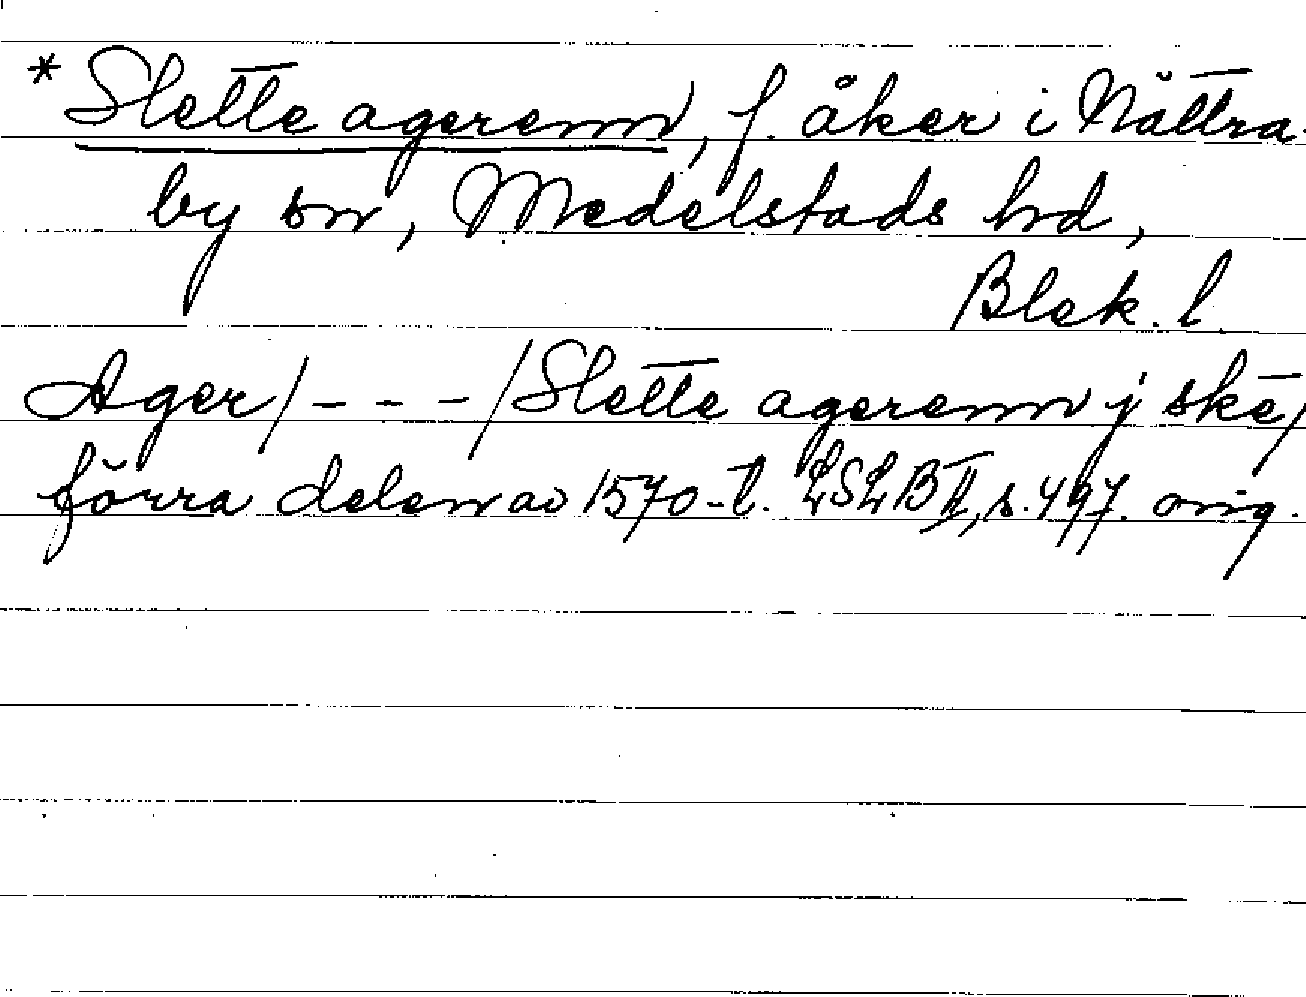 * Slette agerenn, f. åker i Nättra-
by sn, Medelstads hd,
Blek. l.
Ager/ - - - /Slette agerenn j skē/
förra delen av 1570-t. LSLB II, s. 497. orig.